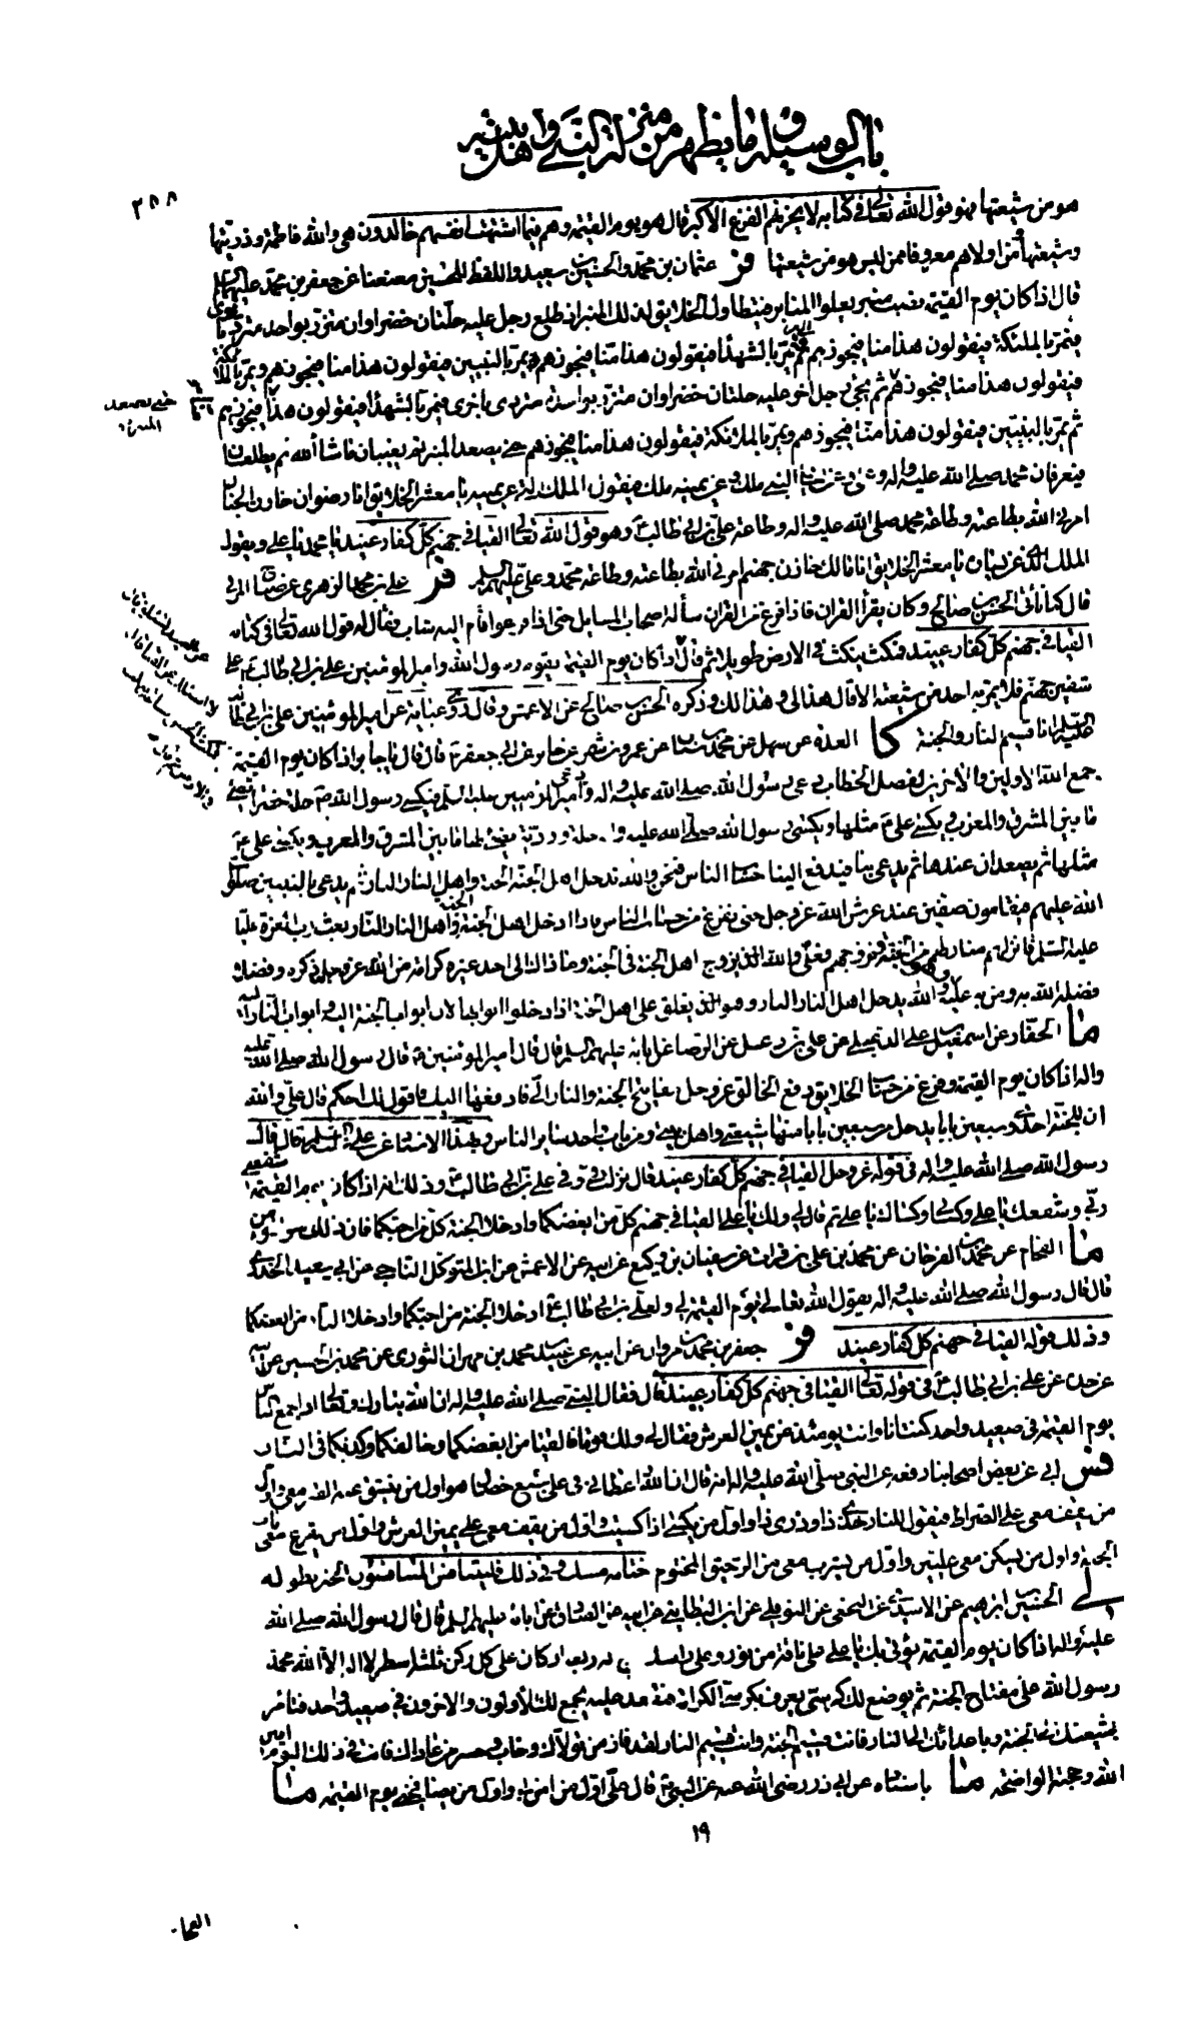 باب الوسيلة وما يظهر من منزلة النبي واهل بيته
٢٨٨
هو من شيعتها فهو قول الله تعالى في كتابه لا يحزنهم الفزع الاكبر قال هو يوم القيمة وهم فيما اشتهت انفسهم خالدون هي والله فاطمة وذريتها
وشيعتها ومن اولاهم معروفا ممن ليس هو من شيعتها فر عثمان بن محمد والحسين بن سعيد واللفظ للحسين معنعنا عن جعفر بن محمد عليهما
قال اذا كان يوم القيمة نصب منبر يعلوا المنابر فيتطاول الخلايق لذلك المنبر اذ طلع رجل عليه حلتان خضراوان متزر بواحدة مترد
فيمر بالملئكة فيقولون هذا منا فيجوزهم ثم يمر بالشهدا فيقولون هذا منا فيجوزهم ويمر بالنبيين فيقولون هذا منا فيجوزهم ويمر
فيقولون هذا منا فيجوزهم ثم يجئ رجل اخر عليه حلتان خضراوان متزر بواحدة متردى باخرى فيمر بالشهدا فيقولون هذا منا فيجوزهم
ثم يمر بالنبيين فيقولون هذا منا فيجوزهم ويمر بالملئكة فيقولون هذا منا فيجوزهم حتى يصعد المنبر ثم يغيبان ما شا الله ثم يطلعان
فيعرفان محمد صلى الله عليه واله وعلى وعن يسار النبي ملك وعن يمينه ملك فيقول الملك الذي عن يمينه يا معشر الخلايق انا رضوان خازن الجنان
امرني الله بطاعته وطاعة محمد صلى الله عليه واله وطاعة علي بن ابي طالب وهو قول الله تعالى القيا في جهنم كل كفار عنيد يا محمد يا علي ويقول
الملك الذي عن يساره يا معشر الخلايق انا مالك خازن جهنم امرني الله بطاعته وطاعة محمد وعلي عليهم السلم فر علي بن محمد الزهري
قال كنا نأتي الحسن بن صالح وكان يقرأ القران فاذا فرغ من القران سأله اصحاب المسايل حتى اذا فرغوا قام اليه شاب فقال له قول الله تعالى في كتابه
القيا في جهنم كل كفار عنيد فنكث ينكث في الارض طويلا ثم قال اذا كان يوم القيمة يقوم رسول الله وامير المؤمنين علي بن ابي طالب على
شفير جهنم فلا يمر به احد من شيعته الا قال هذا لي وهذا لك وذكره الحسن بن صالح عن الاعمش وقال روى عباية عن امير المؤمنين علي بن ابي طالب
عليه السلم انا قسيم النار والجنة كا العدة عن سهل عن محمد بن سنان عن عمرو بن شمر عن جابر عن ابي جعفر قال قال يا جابر اذا كان يوم القيمة
جمع الله الاولين والاخرين لفصل الخطاب دعى رسول الله صلى الله عليه واله ودعى امير المؤمنين عليه السلم فيكسى رسول الله حلة خضرا تضئ
ما بين المشرق والمغرب ويكسى علي مثلها ويكسى رسول الله صلى الله عليه واله حلة وردية يضئ لها ما بين المشرق والمغرب ويكسى علي
مثلها ثم يصعدان عندها ثم يدعى بنا فيدفع الينا حساب الناس فنحن والله ندخل اهل الجنة الجنة واهل النار النار ثم يدعى بالنبيين صلوات
الله عليهم فيقامون صفين عند عرش الله عز وجل حتى نفرغ من حساب الناس فاذا ادخل اهل الجنة الجنة واهل النار النار بعث رب العزة عليا
عليه السلم فانزلهم منازلهم من الجنة وزوجهم فعلي والله الذي يزوج اهل الجنة في الجنة وما ذاك الى احد غيره كرامة من الله عز ذكره وفضلا
فضله الله به ومن به عليه وهو والله يدخل اهل النار النار وهو الذي يغلق على اهل الجنة اذا دخلوا ابوابها لان ابواب الجنة اليه وابواب النار اليه
ما الحفار عن اسمعيل بن علي الدعبلي عن علي بن دعبل عن الرضا عن ابائه عليهم السلم قال قال امير المؤمنين قال رسول الله صلى الله عليه
واله اذا كان يوم القيمة وفرغ من حساب الخلايق دفع الخالق عز وجل مفاتيح الجنة والنار الي فادفعها اليك فاقول لك احكم قال علي والله
ان للجنة احدى وسبعين بابا يدخل من سبعين بابا منها شيعتي واهل بيتي ومن باب واحد ساير الناس وبهذا الاسناد عن علي عليه السلم قال قال
رسول الله صلى الله عليه واله في قوله عز وجل القيا في جهنم كل كفار عنيد قال نزلت في وفي علي بن ابي طالب وذلك انه اذا كان يوم القيمة شفعني
ربي وشفعك يا علي وكساني وكساك يا علي ثم قال لي ولك يا علي القيا في جهنم كل من ابغضكما وادخلا الجنة كل من احبكما فان ذلك هو المؤمن
ما الفحام عن محمد بن الفرخان عن محمد بن علي بن فرات عن سفيان بن وكيع عن ابيه عن الاعمش عن ابي المتوكل الناجي عن ابي سعيد الخدري
قال قال رسول الله صلى الله عليه واله يقول الله تعالى يوم القيمة لي ولعلي بن ابي طالب ادخلا الجنة من احبكما وادخلا النار من ابغضكما
وذلك قوله القيا في جهنم كل كفار عنيد فر جعفر بن محمد بن مروان عن ابيه عن عبيد بن محمد بن مهران الثوري عن محمد بن الحسين عن ابيه
عن جده عن علي بن ابي طالب في قوله تعالى القيا في جهنم كل كفار عنيد قال فقال النبي صلى الله عليه واله ان الله تبارك وتعالى اذا جمع الناس
يوم القيمة في صعيد واحد كنت انا وانت يومئذ عن يمين العرش فقال لي ولك قوما فالقيا من ابغضكما وخالفكما وكذبكما في النار
فس ابي عن بعض اصحابنا رفعه عن النبي صلى الله عليه واله انه قال ان الله اعطاني في علي سبع خصال هو اول من ينشق عنه القبر معي واول
من يقف معي على الصراط فيقول للنار خذي ذا وذري ذا واول من يكسى اذا كسيت واول من يقف معي على يمين العرش واول من يقرع معي باب
الجنة واول من يسكن معي عليين واول من يشرب معي من الرحيق المختوم ختامه مسك وفي ذلك فليتنافس المتنافسون الخبر بطوله
لي الحسين بن ابرهيم عن الاسدي عن النخعي عن النوفلي عن ابن البطايني عن ابيه عن الصادق عن ابائه عليهم السلم قال قال رسول الله صلى الله
عليه واله اذا كان يوم القيمة يؤتى بك يا علي على ناقة من نور وعلى راسك تاج له اربعة اركان على كل ركن ثلثة اسطر لا اله الا الله محمد
رسول الله علي مفتاح الجنة ثم يوضع لك كرسي يعرف بكرسي الكرامة فتقعد عليه يجمع لك الاولون والاخرون في صعيد واحد فتامر
بشيعتك الى الجنة وباعدائك الى النار فانت قسيم الجنة وانت قسيم النار لقد فاز من تولاك وخاب وخسر من عاداك فانت في ذلك اليوم امين
الله وحجته الواضحة ما باسناده عن ابي ذر رضي الله عنه عن النبي قال علي اول من امن بي واول من يصافحني يوم القيمة ما
١٩